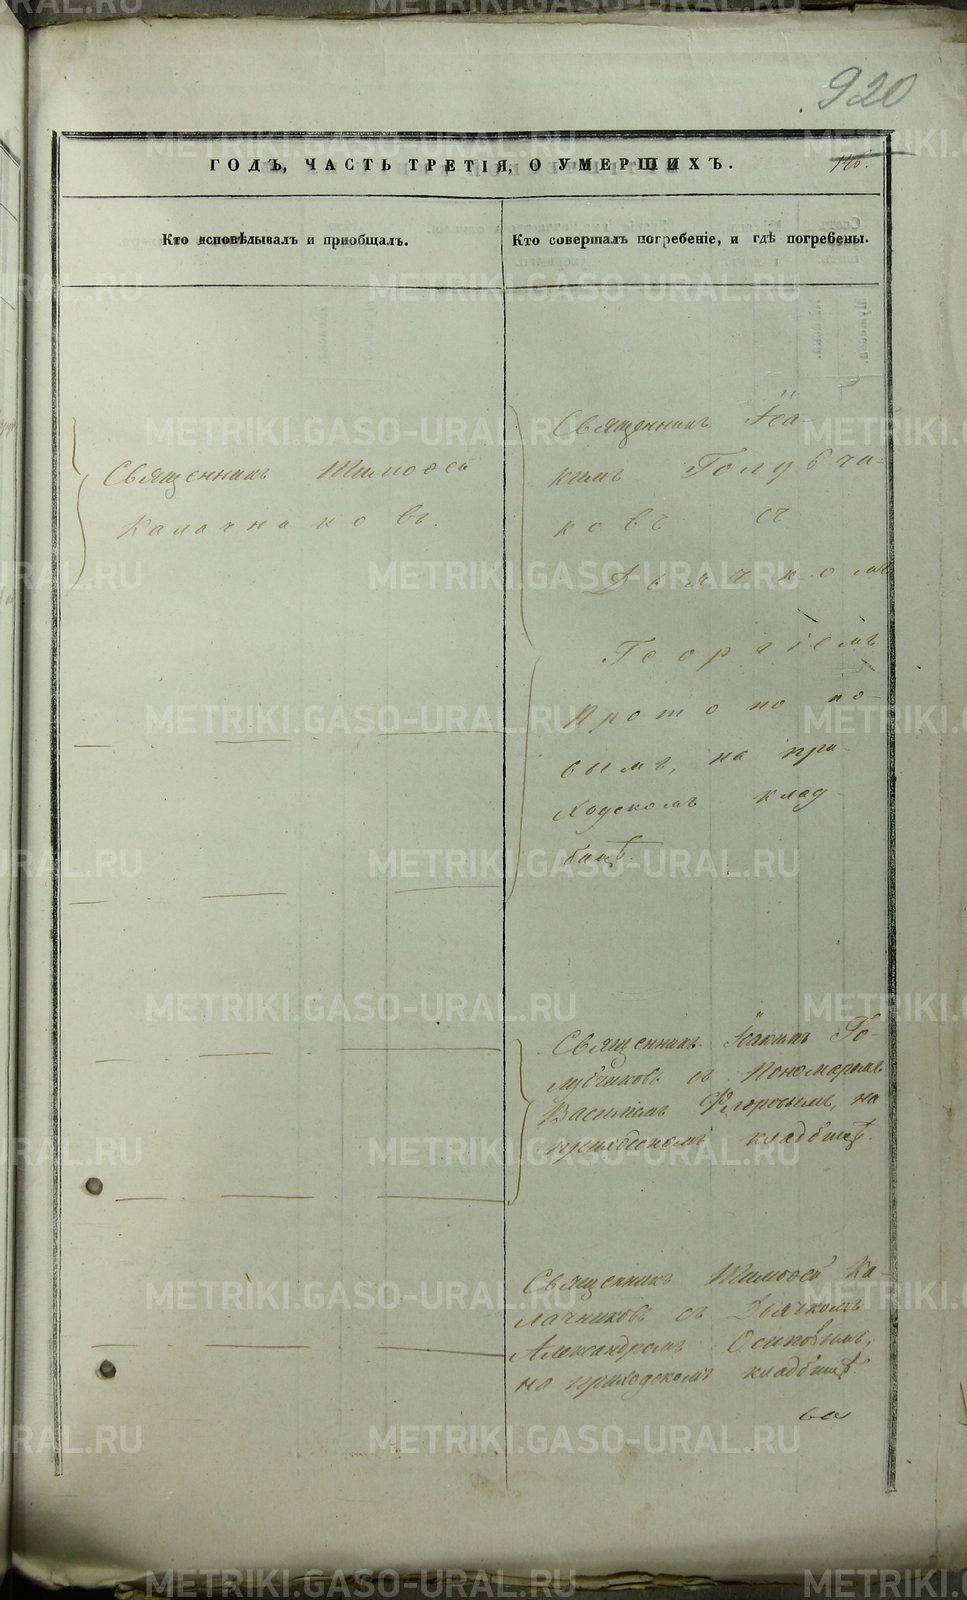 920
146.
ГОДЪ, ЧАСТЬ ТРЕТІЯ, О УМЕРШИХЪ.
Кто исповѣдывалъ и пріобщалъ.
Кто совершалъ погребеніе, и гдѣ погребены.
Священникъ Тимофей
Калачниковъ.
Священникъ Іоа-
кимъ Голубчи-
ковъ съ
Дьячкомъ
Георгіемъ
Протопопо-
вымъ, на при-
ходскомъ клад-
бищѣ.
Священникъ Іоакимъ Го-
лубчиковъ съ Пономаремъ
Василіемъ Флоровымъ, на
кладбищѣ.
Священникъ Тимофей Ка-
лачниковъ съ Дьячкомъ
Александромъ Осиповымъ,
на приходскомъ кладбищѣ.
METRIKI.GASO-URAL.RU